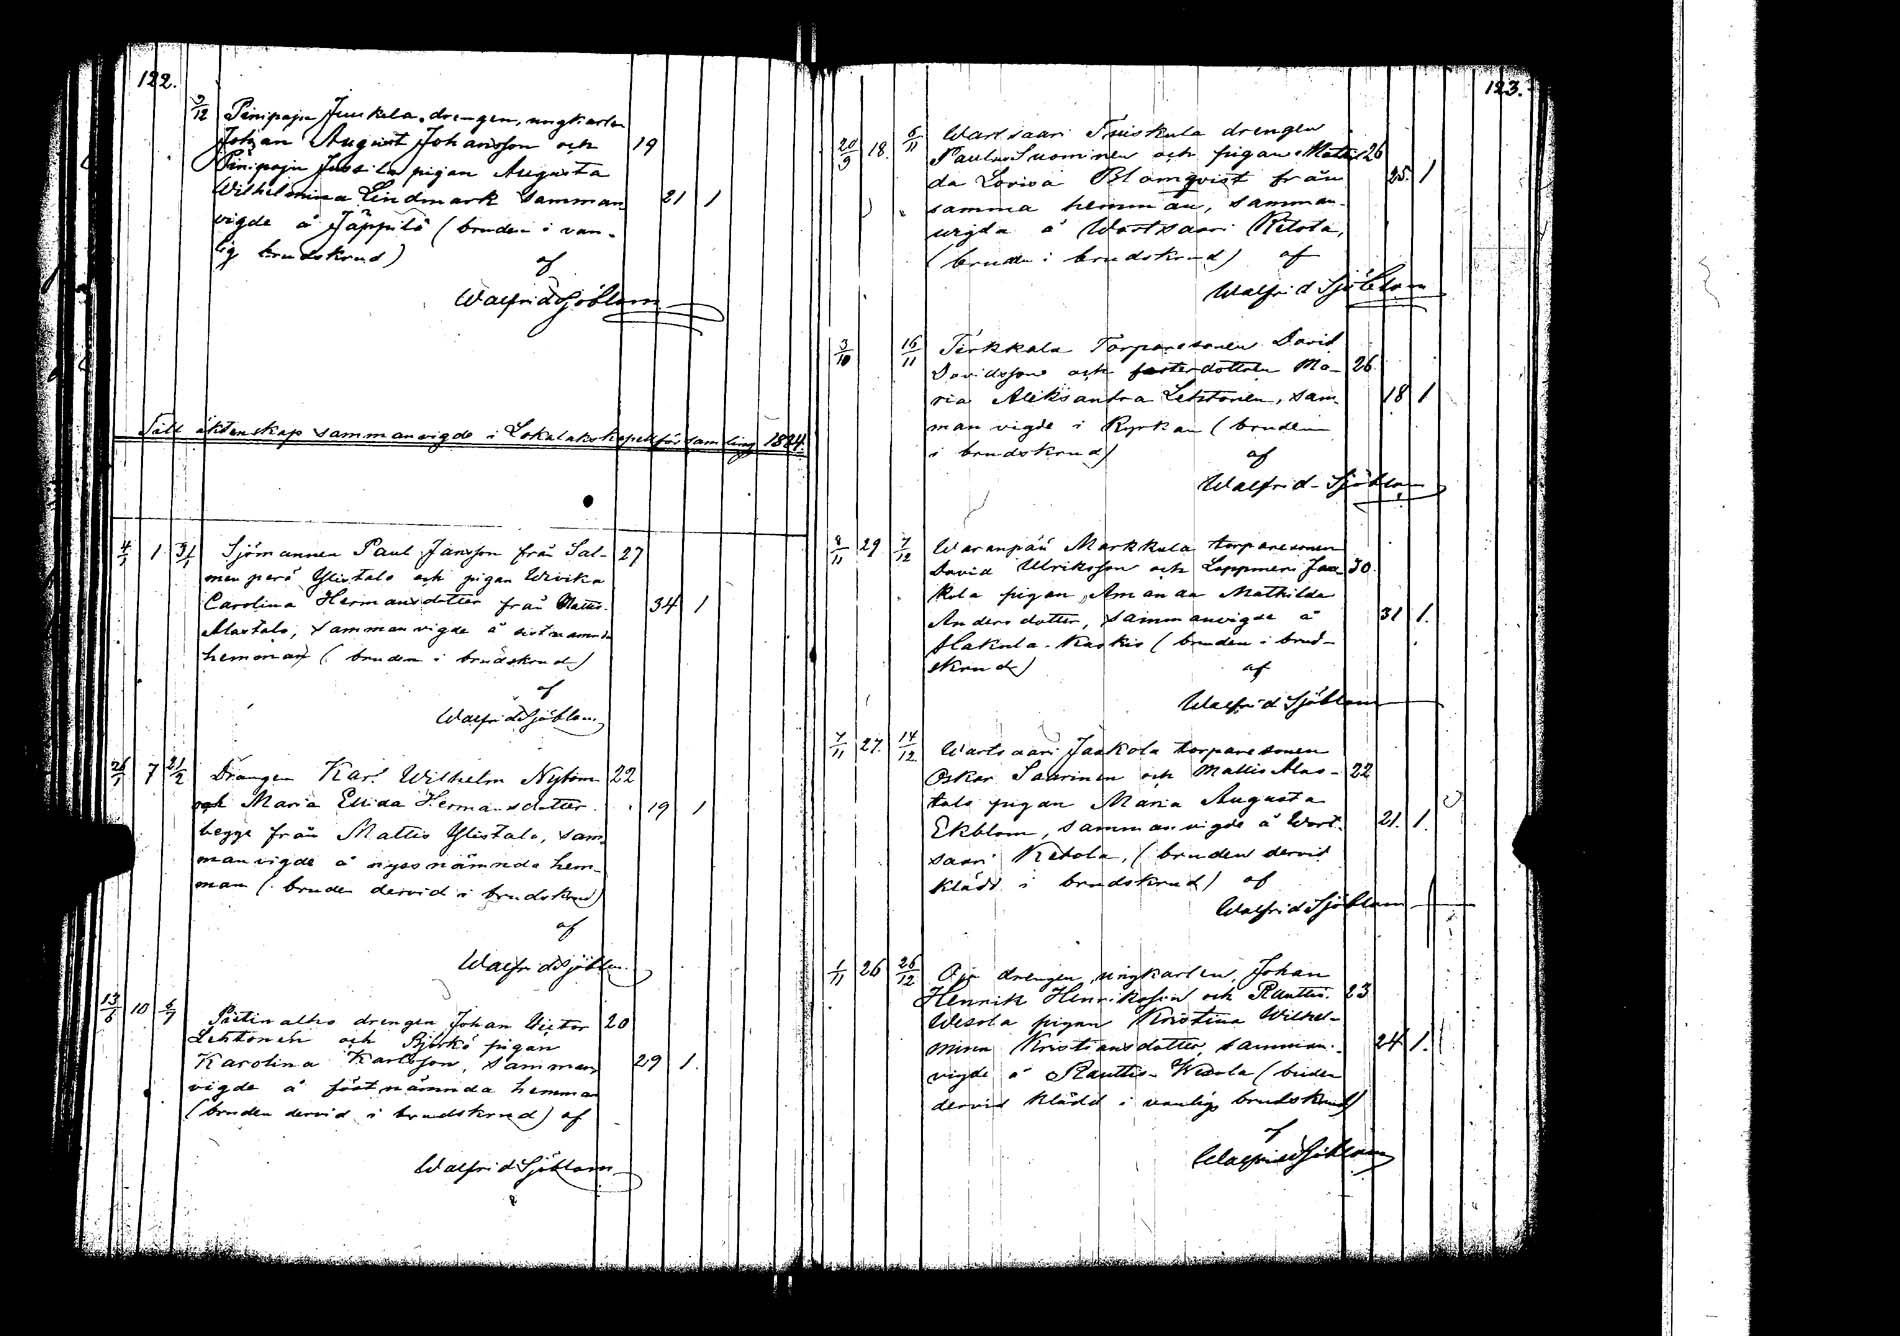 122.
9/12 Pinipaju Junkela drengen, ungkarlen
Johan August Johansson och 19
Pinipaju Jussila pigan Augusta
Wilhelmina Lindmark samman 21 1
vigde å Jäppilä (bruden i van-
lig brudskrud) af
Walfrid Sjöblom
Till äktenskap sammanvigde i Lokalaks kapellförsamling 1884.
4/1 1 31/1 Sjömannen Paul Jansson från Sal- 27
menperä Ylistalo och pigan Wivika
Carolina Hermansdotter från Mattis 34 1
Alastalo, sammanvigde å sistnämnda
hemman (bruden i brudskrud)
af
Walfrid Sjöblom
26/1 7 21/2 Drängen Karl Wilhelm Nyblom 22
och Maria Elida Hermansdotter 19 1
begge från Mattis Ylistalo, sam
manvigde å nyssnämnda hem-
man (bruden dervid i brudskrud)
af
Walfrid Sjöblom
13/6 10 6/7 drengen Johan Victor 20
Lehtonen och Björkö pigan
Karolina Karlsson, samman 29 1.
vigde å förstnämnda hemman
(bruden dervid i brudskrud) af
Walfrid Sjöblom
123.
20/9 18. 6/11 Wartsaari Tuiskula drengen
Paulus Suominen och pigan Mathil 26
da Lovisa Blomqvist från 25. 1
samma hemman, samman-
vigda å Wartsaari Ketola,
(bruden i brudskrud) af
Walfrid Sjöblom
3/10 16/11 Tirkkala Torparesonen David
Davidsson och dottren Ma- 26.
ria Aleksandra Lehtonen, sam 18 1
manvigde i Kyrkan (bruden
i brudskrud) af
Walfrid Sjöblom
8/11 29 7/12 Waranpää Markkula torparesonen
David Ulriksson och Lappmeri Jaa- 30.
kola pigan Amanda Mathilda
Andersdotter, sammanvigde å 31 1.
Hakula-Kaskis (bruden i brud-
skrud) af
Walfrid Sjöblom
7/11 27. 14/12 Wartsaari Jaakola torparesonen
Oskar Saarinen och Mattis Alas- 22
talo pigan Maria Augusta
Ekblom, sammanvigde å Wart- 21. 1.
saari Ketola, (bruden dervid
klädd i brudskrud) af
Walfrid Sjöblom
1/11 26 26/12 drengen, ungkarlen Johan
Henrik Henriksson och Rauttis- 23
Wesola pigan Kristina Wilhel-
mina Kristiansdotter, samman- 24 1.
vigde å Rauttis-Wesola (bruden
dervid klädd i vanlig brudskrud)
af
Walfrid Sjöblom